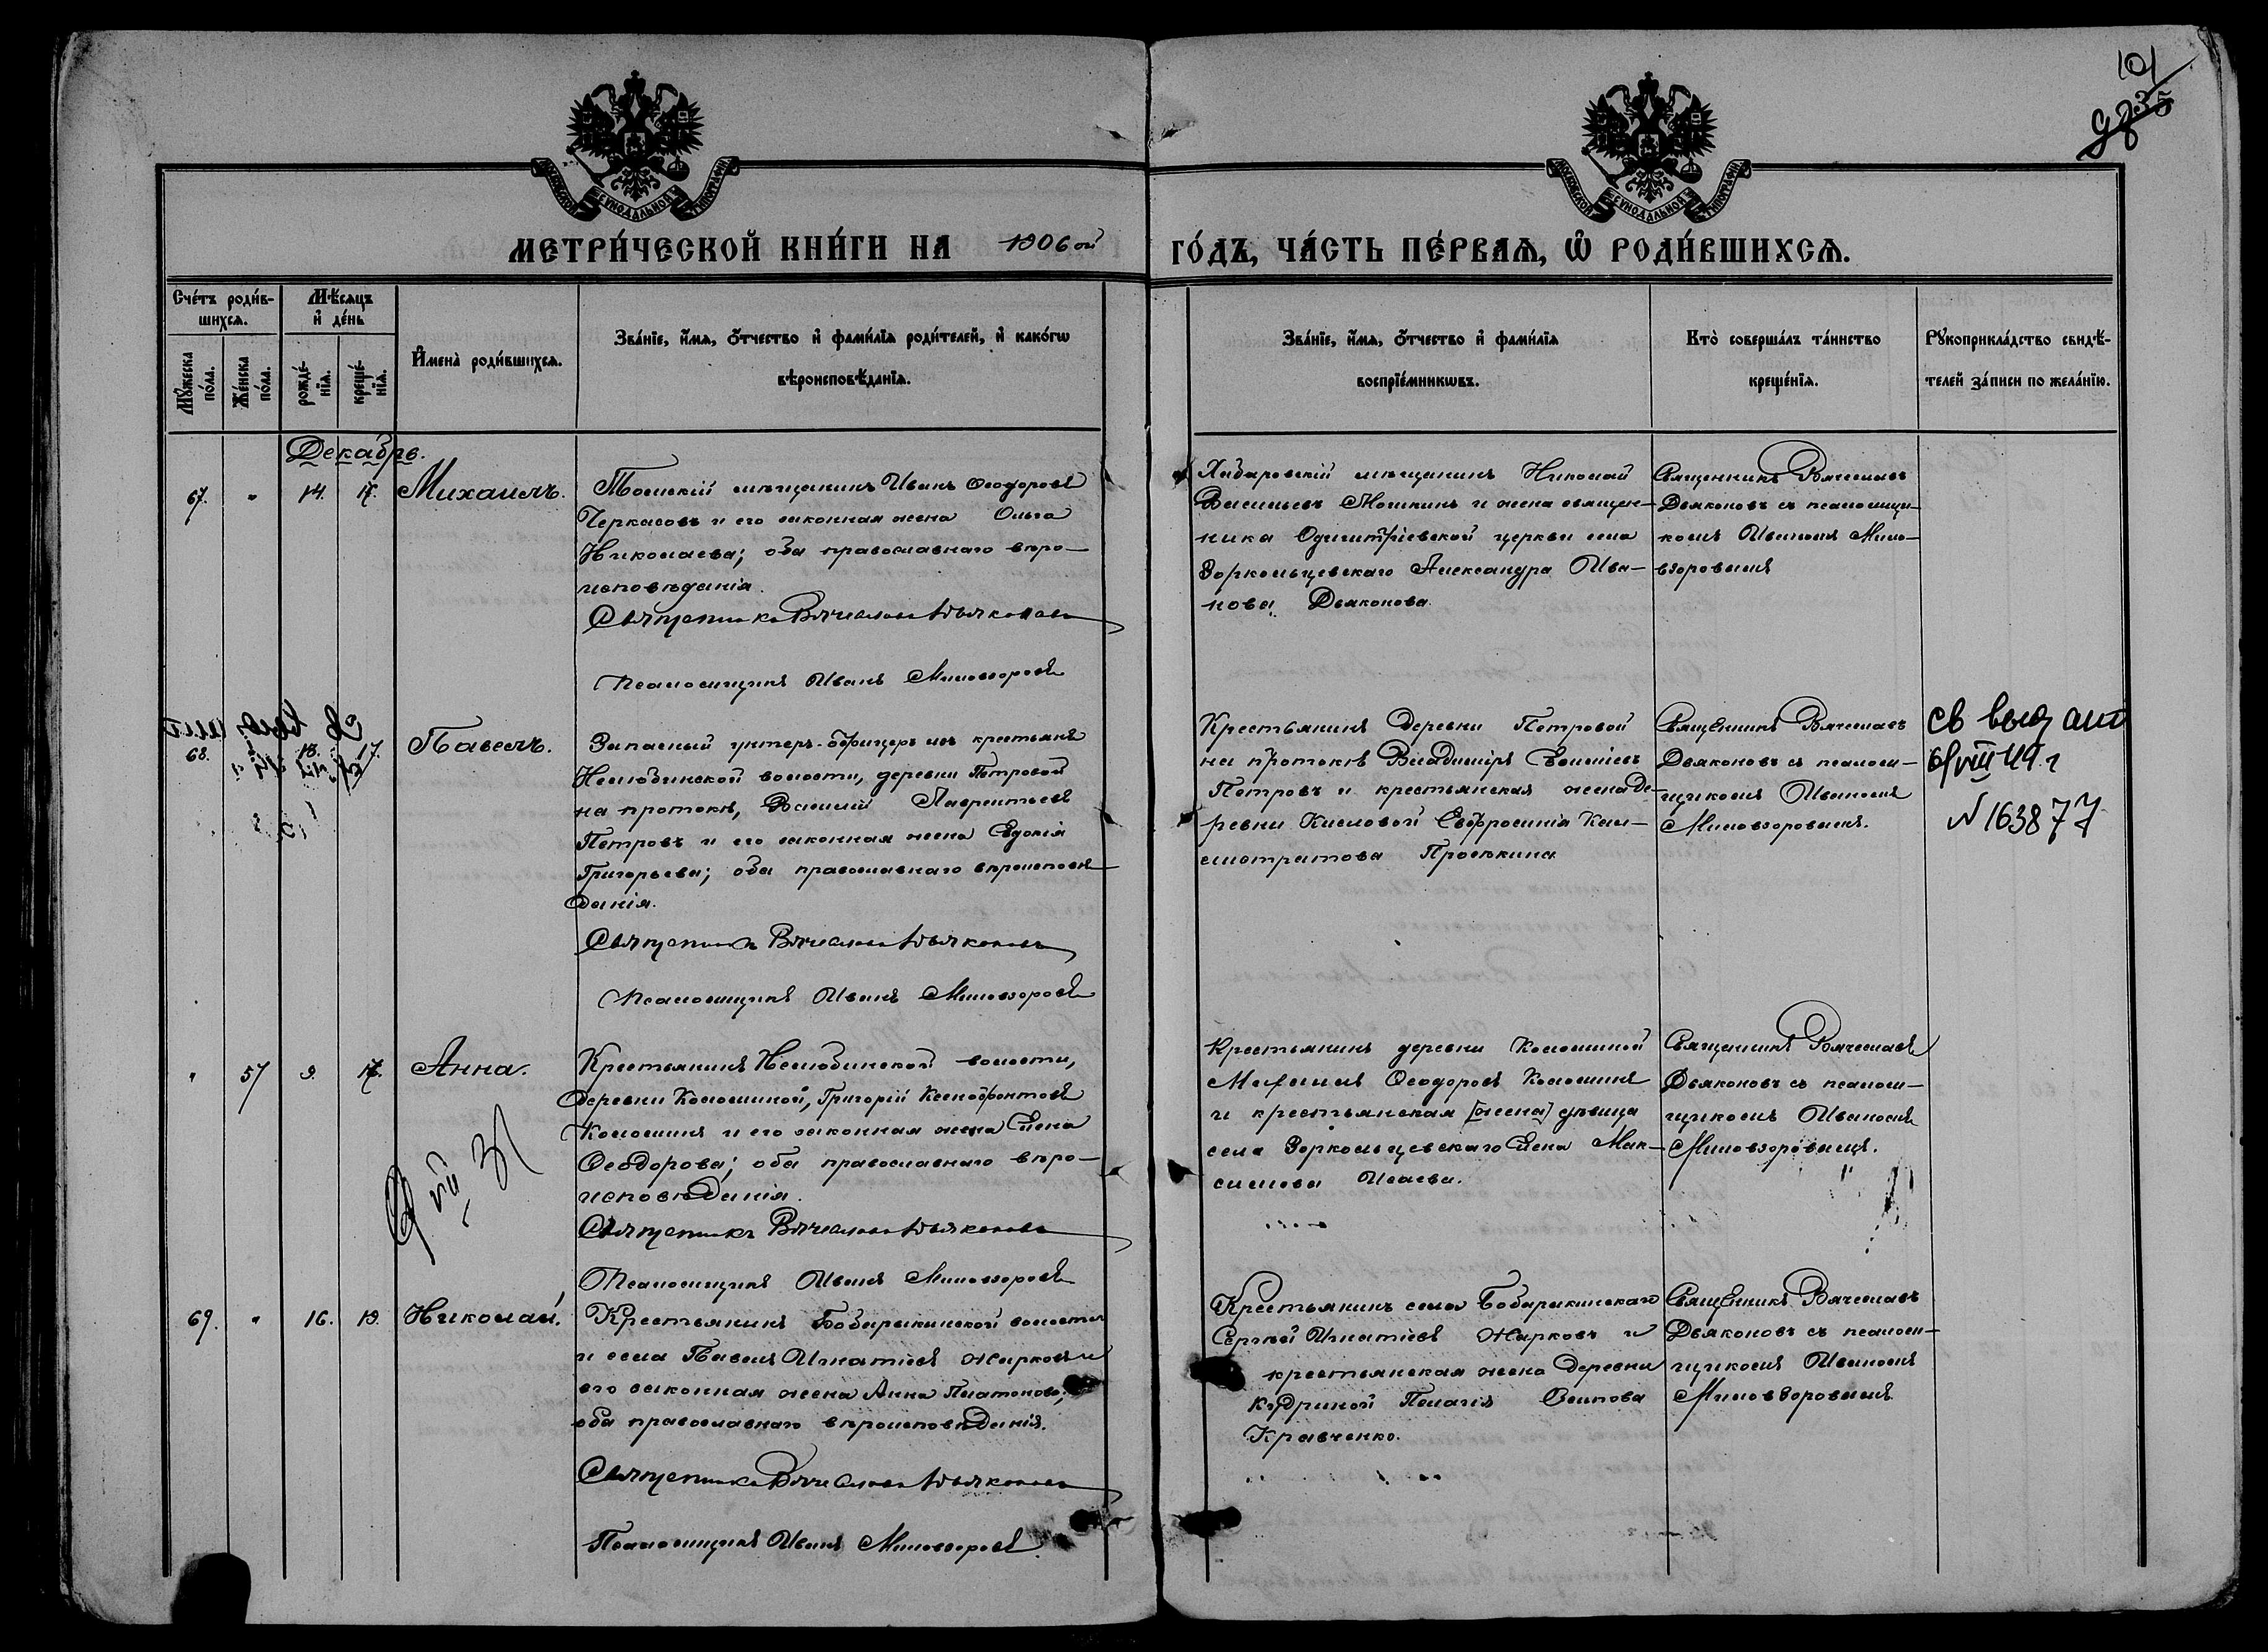 101
98 35
МОСКОВСКОЙ СѴНОДАЛЬНОЙ ТИПОГРАФІИ
МОСКОВСКОЙ СѴНОДАЛЬНОЙ ТИПОГРАФІИ
МЕТРИ́ЧЕСКОЙ КНИ́ГИ НА 1906 ой
ГО́ДЪ, ЧА́СТЬ ПЕ́РВАѦ, Ѡ҆ РОДИ́ВШИХСѦ.
Сче́тъ роди́в-
шихсѧ.
Мꙋ́жеска по́ла.
Же́нска по́ла.
Мѣ́сѧцъ
и҆ де́нь
рожде́-
нїѧ.
креще́-
нїѧ.
И҆мена̀ роди́вшихсѧ.
Зва́нїе, и҆́мѧ, о҆́тчество и҆ фами́лїѧ роди́телей, и҆ како́гѡ
вѣроисповѣ́данїѧ.
Зва́нїе, и҆́мѧ, о҆́тчество и҆ фами́лїѧ
воспрїе́мникѡвъ.
Кто̀ соверша́лъ та́инство
креще́нїѧ.
Рꙋкоприкла́дство свидѣ́-
телей за́писи по жела́нїю.
Декабрь.
67. " 14. 17. Михаилъ.
Томскій мѣщанинъ Иванъ Ѳеодоровъ
Черкасовъ и его законная жена Ольга
Николаева; оба православнаго вѣро-
исповѣданія.
Священникъ Вячеславъ Дьяконовъ
Псаломщикъ Иванъ Миловзоровъ
Николай
Васильевъ Мошкинъ и жена священ-
ника Одигитріевской церкви села
Зоркольцевскаго Александра Ива-
нова Дьяконова.
Священникъ Вячеславъ
Дьяконовъ съ псаломщи-
комъ Иваномъ Мило-
взоровымъ
68. 13. 17. Павелъ.
Запасный унтеръ-офицеръ изъ крестьянъ
Нелюбинской волости, деревни Петровой
на протокѣ, Василій Лаврентьевъ
Петровъ и его законная жена Евдокія
Григорьева; оба православнаго вѣроисповѣ
данія.
Священникъ Вячеславъ Дьяконовъ
Псаломщикъ Иванъ Миловзоровъ
Крестьянинъ деревни Петровой
на протокѣ Владиміръ
Петровъ и крестьянская жена де-
ревни Кисловой Евфросинія Кали-
стратова Просѣкина
Священникъ Вячеславъ
Дьяконовъ съ псалом-
щикомъ Иваномъ
Миловзоровымъ.
св выд
6/VIII 49. г
N 163877
" 57 9. 17. Анна.
Крестьянинъ Нелюбинской волости,
деревни Коломиной, Григорій Ксенофонтовъ
Коломинъ и его законная жена Елена
Ѳеодорова; оба православнаго вѣро-
исповѣданія.
Священникъ Вячеславъ Дьяконовъ
Псаломщикъ Иванъ Миловзоровъ
Крестьянинъ деревни Коломиной
Ѳеодоровъ Коломинъ
и крестьянская [жена] дѣвица
села Зоркольцевскаго Елена Мак-
симова Исаева.
Священникъ Вячеславъ
Дьяконовъ съ псалом-
щикомъ Иваномъ
Миловзоровымъ.
69. " 16. 19. Николай.
Крестьянинъ Бобарыкинской волости
и села Павелъ Игнатіевъ Жарковъ и
его законная жена Анна Платонова;
оба православнаго вѣроисповѣданія.
Священникъ Вячеславъ Дьяконовъ
Псаломщикъ Иванъ Миловзоровъ.
Крестьянинъ села Бобарыкинскаго
Сергѣй Игнатіевъ Жарковъ и
крестьянская жена деревни
Кудриной Пелагія Осипова
Кравченко.
Священникъ Вячеславъ
Дьяконовъ съ псалом-
щикомъ Иваномъ
Миловзоровымъ